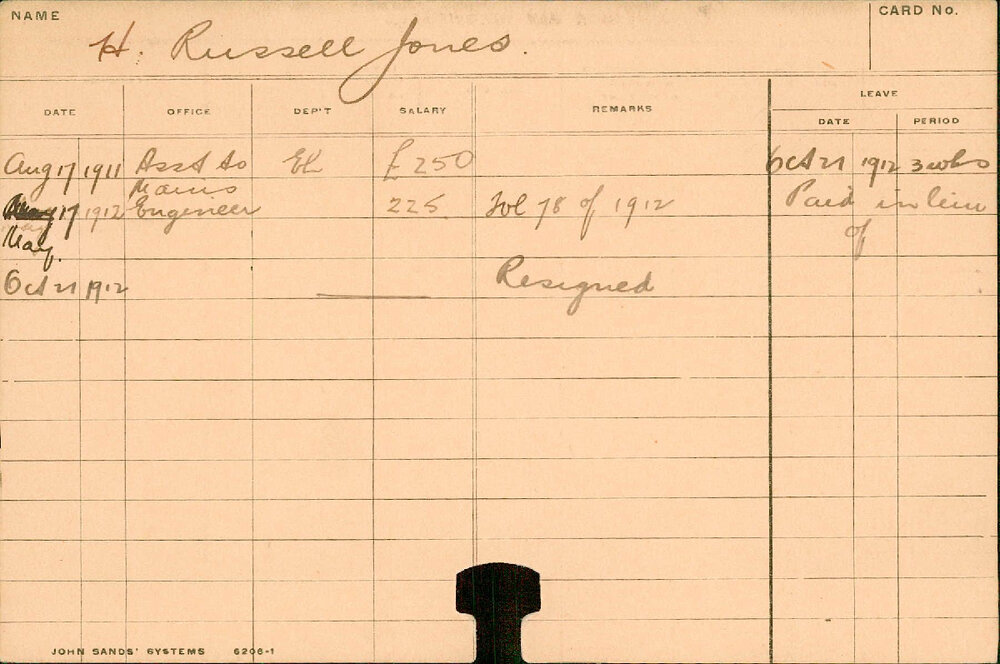 NAME
CARD No.
H. Russell Jones.
DATE OFFICE DEP'T SALARY REMARKS LEAVE
DATE PERIOD
Aug 17 1911 Asst to EL £250 Oct 21 1912 3 wks
Mains
17 1912 Engineer 225 Vol 78 of 1912 Paid in lieu
May. of
Oct 21 1912 Resigned
JOHN SANDS' SYSTEMS 6206-1